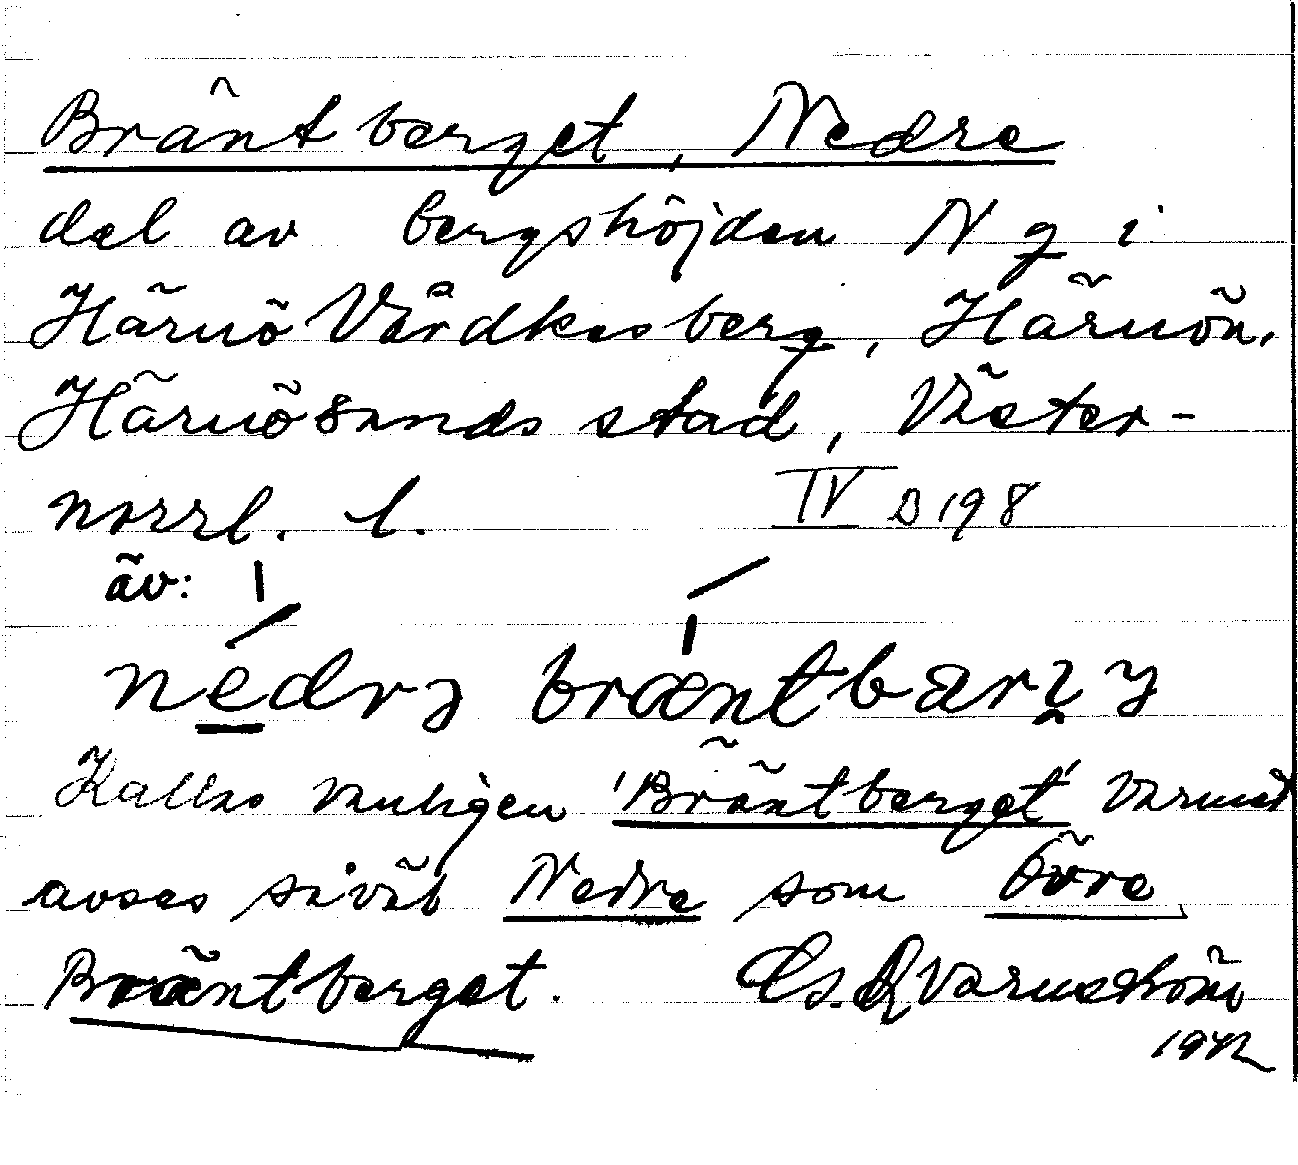 Bräntberget, Nedre
del av bergshöjden N g i
Härnö Vårdkasberg, Härnön,
Härnösands stad, Väster-
norrl. l. IV B 198
äv:
nedrɜ bræntbarɜ
Kallas vanligen 'Bräntberget' varmed
avses såväl Nedre som Övre
Bräntberget. Qvarnström
1942